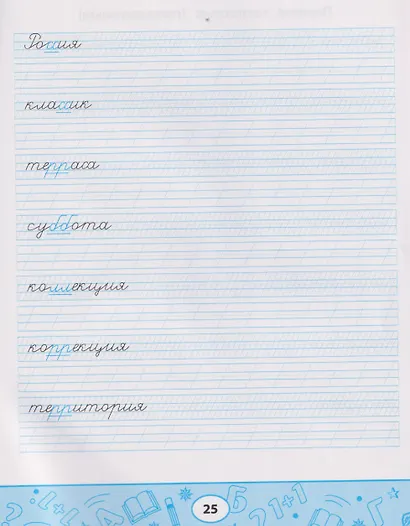 Россия
классик
терраса
суббота
коллекция
коррекция
территория
25
Б 2 1+1 Г